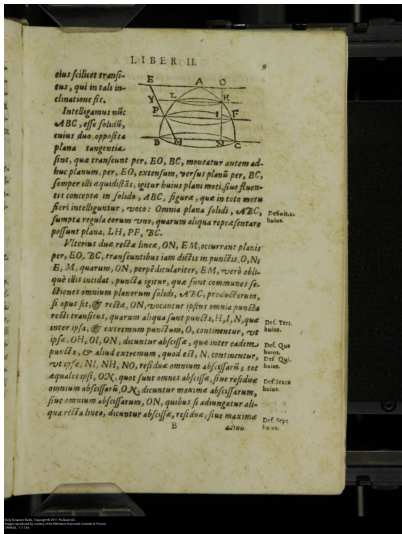 LIBER II.
9
eius scilicet transi-
tus, qui in tali in-
clinatione fit.
Intelligamus nũc
ABC, esse solidũ,
cuius duo opposita
plana tangentia
sint, quæ transeunt per, EO, BC, moueatur autem ad-
huc planum, per, EO, extensum, versus planũ per, BC,
semper illi æquidistãs, igitur huius plani moti, siue fluen-
tis concepta in solido, ABC, figura, quæ in toto motu
fieri intelliguntur, voco: Omnia plana solidi, ABC,
sumpta regula eorum vno, quarum aliqua repræsentare
possunt plana, LH, PF, BC.
Definitio.
huius.
Vlterius duæ rectæ lineæ, ON, EM, occurrant planis
per, EO, BC, transeuntibus iam dictis in punctis, O, N;
E, M, quarum, ON, perpẽdiculariter, EM, verò obli-
què illis incidat, puncta igitur, quæ sunt communes se-
ctiones omnium planorum solidi, ABC, productorum,
si opus sit, & rectæ, ON, vocantur ipsius omnia puncta
recti transitus, quarum aliqua sunt puncta, H, I, N, quæ
inter ipsa, & extremum punctum, O, continentur, vt
ipsæ, OH, OI, ON, dicuntur abscissæ, quæ inter eadem
puncta, & aliud extremum, quod est, N, continentur,
vt ipsæ, NI, NH, NO, residuæ omnium abscissarũ; tot
æquales ipsi, ON, quot sunt omnes abscissæ, siue residuæ
omnium abscissarũ, ON, dicuntur maximæ abscissarum,
siue omnium abscissarum, ON, quibus si adiungatur ali-
qua recta linea, dicuntur abscissæ, residuæ, siue maximæ
Def. Tert.
huius.
Def. Qua
huius.
Def. Qui.
huius.
Def. Sexta
huius.
Def. Sept
huius.
B
adiun
E
A
O
L
H
Y
P
I
F
B
M
N
C
Early European Books, Copyright © 2011 ProQuest LLC.
Images reproduced by courtesy of the Biblioteca Nazionale Centrale di Firenze.